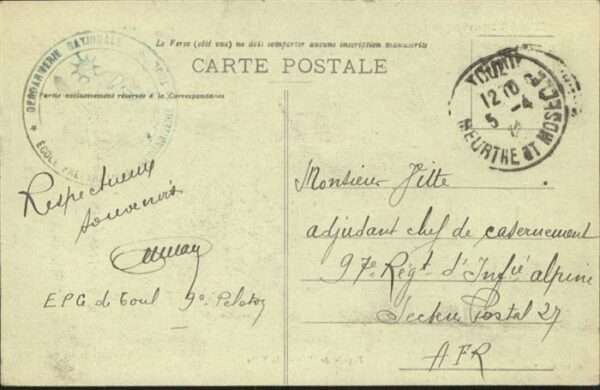 Le Verso (côté vue) ne doit comporter aucune inscription manuscrite
CARTE POSTALE
Partie exclusivement réservée à la Correspondance
GENDARMERIE NATIONALE
ÉCOLE
TOUL
12 10
5 - 4
MEURTHE ET MOSELLE
Respectueux
souvenirs
EPG de Toul 9e Peloton
Monsieur Jitte
adjudant chef de casernement
97e Régt d'Infie alpine
Secteur Postal 27
AFR